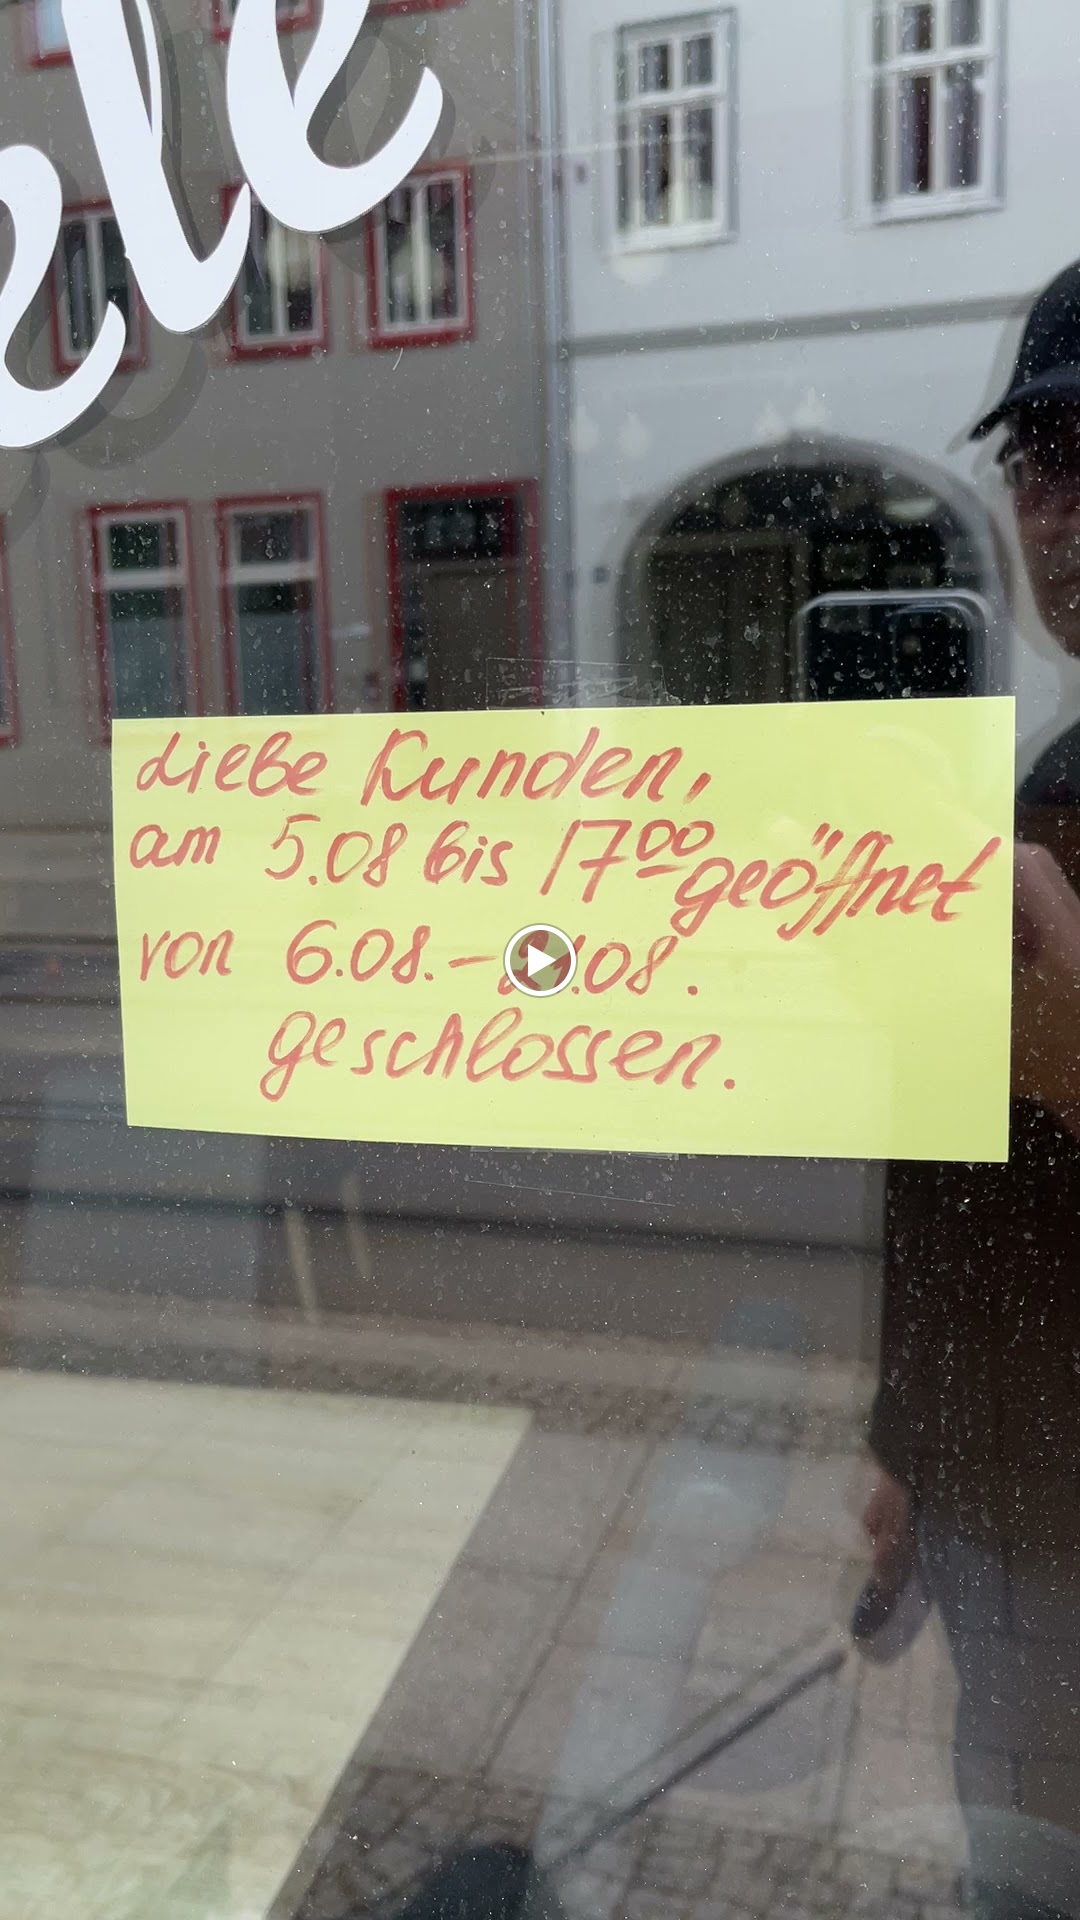 Liebe Kunden,
am 5.08 bis 17⁰⁰ geöffnet
von 6.08. - 21.08.
geschlossen.